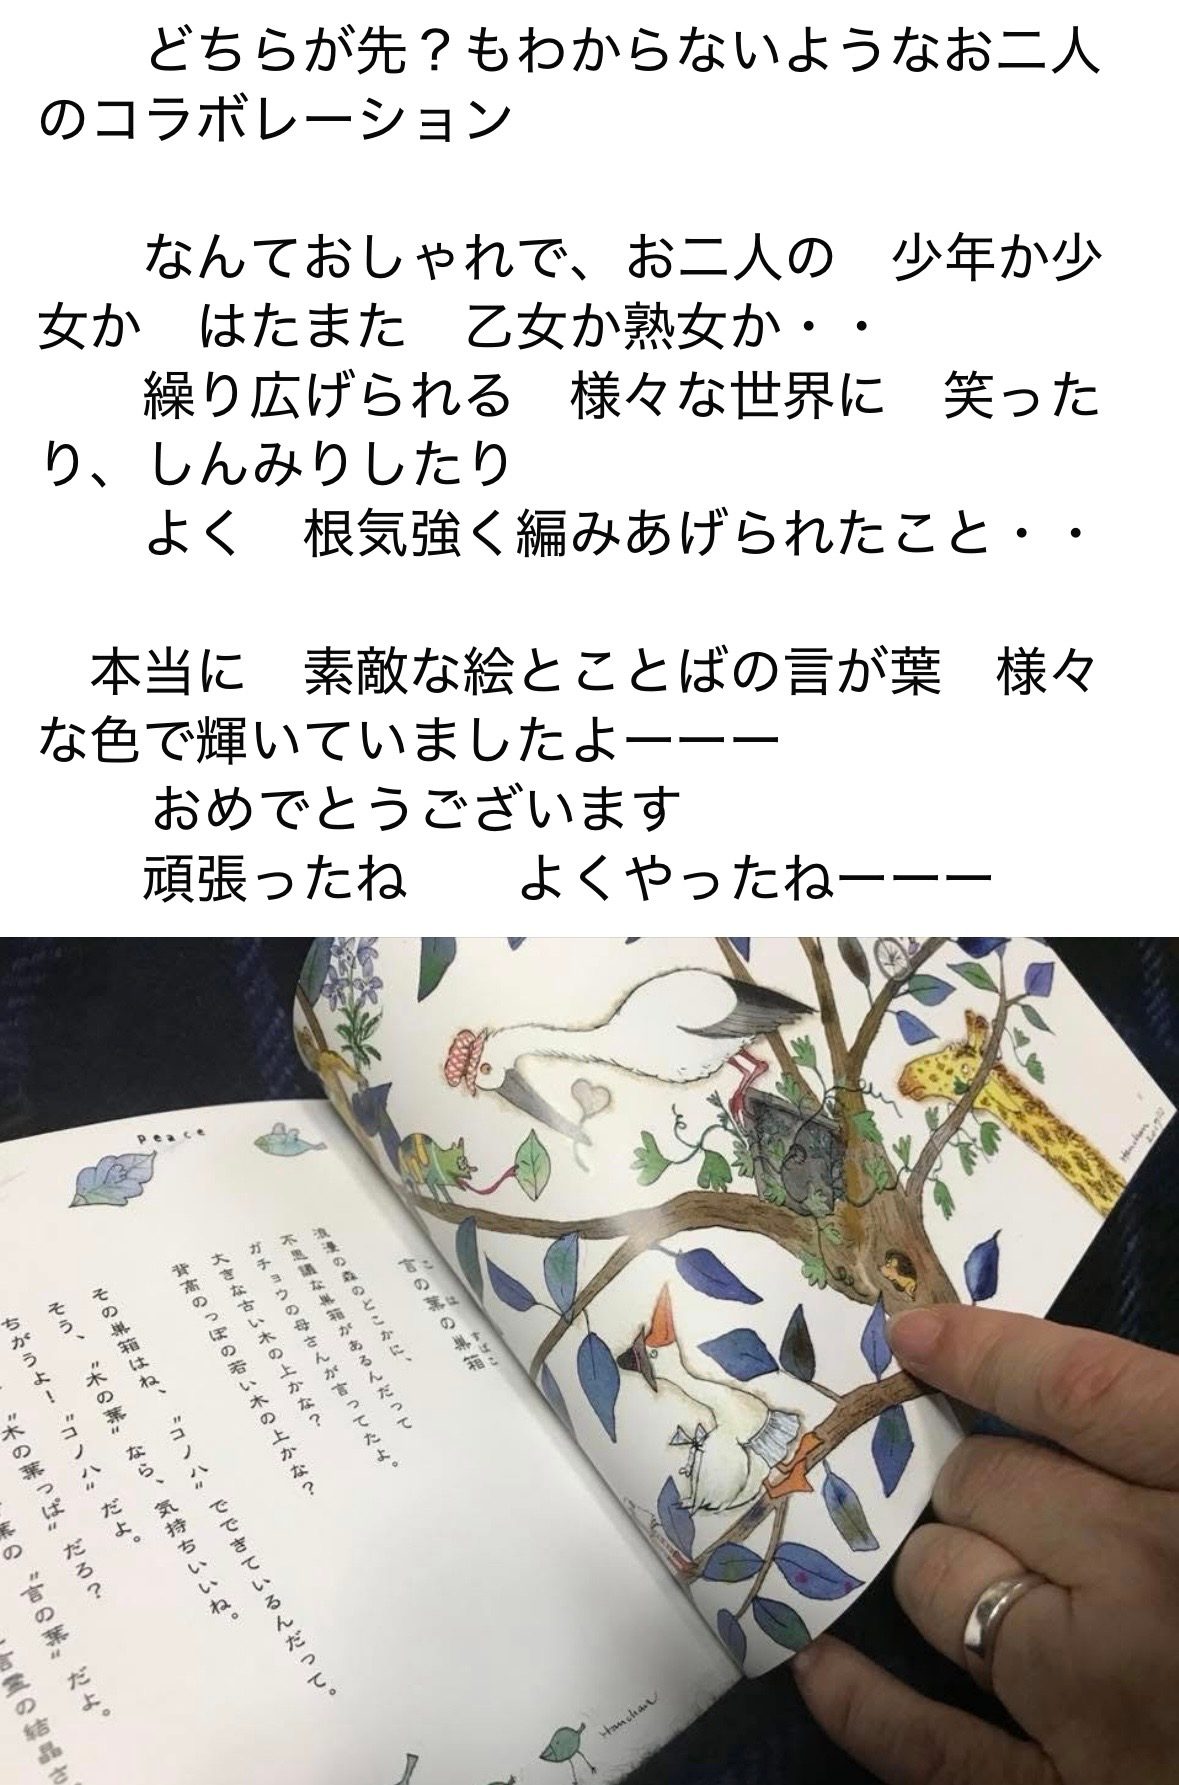 どちらが先？もわからないようなお二人
のコラボレーション
なんておしゃれで、お二人の　少年か少
女か　はたまた　乙女か熟女か・・
繰り広げられる　様々な世界に　笑った
り、しんみりしたり
よく　根気強く編みあげられたこと・・
本当に　素敵な絵とことばの言が葉　様々
な色で輝いていましたよーーー
おめでとうございます
頑張ったね　　よくやったねーーー
peace
言の葉の巣箱
こ　は　すばこ
浪漫の森のどこかに、
不思議な巣箱があるんだって
ガチョウの母さんが言ってたよ。
大きな古い木の上かな？
背高のっぽの若い木の上かな？
その巣箱はね、〝コノハ〟でできているんだって。
そう、〝木の葉〟なら、気持ちいいね。
ちがうよ！〝コノハ〟だよ。
〝木の葉っぱ〟だろ？
葉の〝言の葉〟だよ。
言霊の結晶さ
Hanchan
Hanchan